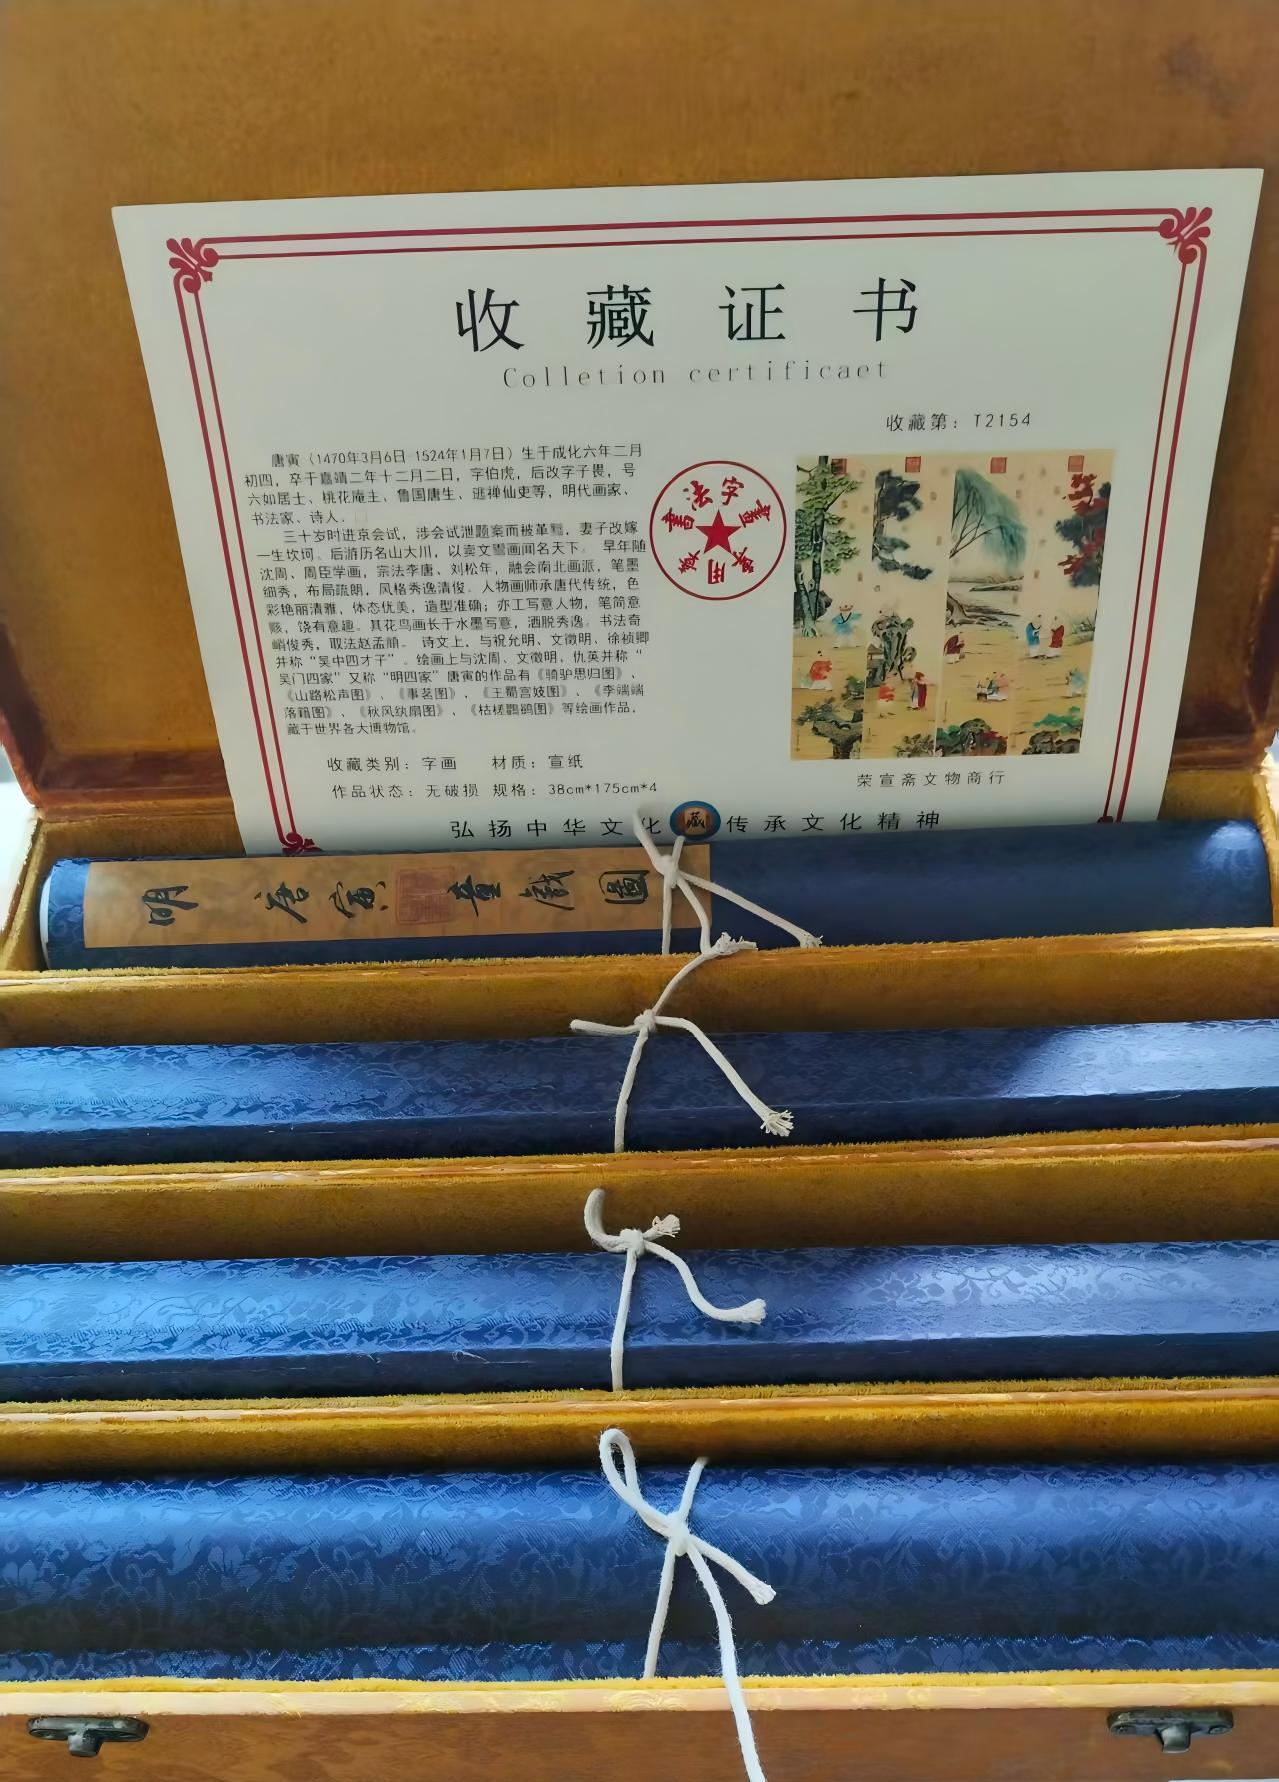 收藏证书
Colletion certificaet
收藏第：T2154
唐寅（1470年3月6日-1524年1月7日）生于成化六年二月
初四，卒于嘉靖二年十二月二日，字伯虎，后改字子畏，号
六如居士、桃花庵主、鲁国唐生、逃禅仙吏等，明代画家、
书法家、诗人．
三十岁时进京会试，涉会试泄题案而被革黜，妻子改嫁
一生坎坷。后游历名山大川，以卖文鬻画闻名天下。 早年随
沈周、周臣学画，宗法李唐、刘松年，融会南北画派，笔墨
细秀，布局疏朗，风格秀逸清俊。人物画师承唐代传统，色
彩艳丽清雅，体态优美，造型准确；亦工写意人物，笔简意
赅，饶有意趣。其花鸟画长于水墨写意，洒脱秀逸。书法奇
峭俊秀，取法赵孟頫。 诗文上，与祝允明、文徵明、徐祯卿
并称“吴中四才子”。绘画上与沈周、文徵明、仇英并称“
吴门四家”又称“明四家”唐寅的作品有《骑驴思归图》、
《山路松声图》、《事茗图》、《王蜀宫妓图》、《李端端
落籍图》、《秋风纨扇图》、《枯槎鸜鹆图》等绘画作品，
藏于世界各大博物馆。
書法字畫專用章
收藏类别：字画 材质：宣纸
作品状态：无破损 规格：38cm*175cm*4
荣宣斋文物商行
弘扬中华文化 藏 传承文化精神
明 唐寅 童戲圖